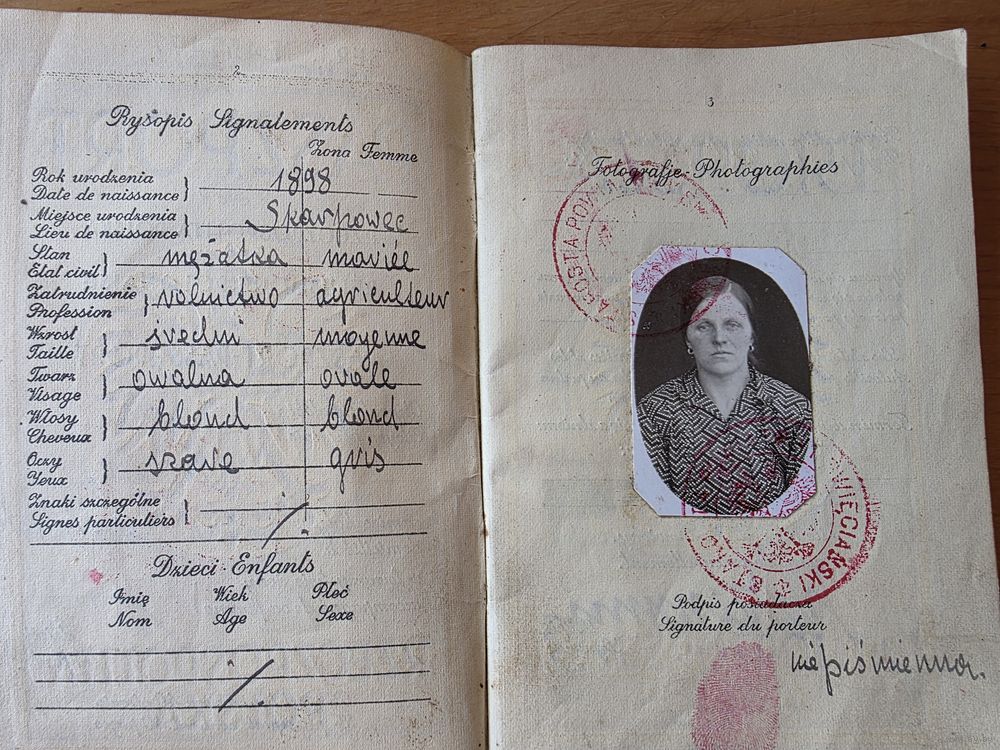 2
Rysopis Signalements
Żona Femme
Rok urodzenia
Date de naissance } 1898
Miejsce urodzenia
Lieu de naissance } Skarpowec
Stan
Etat civil } mężatka mariée
Zatrudnienie
Profession } rolnictwo agriculteur
Wzrost
Taille } średni moyenne
Twarz
Visage } owalna ovale
Włosy
Cheveux } blond blond
Oczy
Yeux } szare gris
Znaki szczególne
Signes particuliers }
Dzieci Enfants
Imię Wiek Płeć
Nom Age Sexe
3
Fotografje-Photographies
STAROSTA POW
STAR
WIĘCIAŃSKI
Podpis posiadacza
Signature du porteur
niepiśmienna.